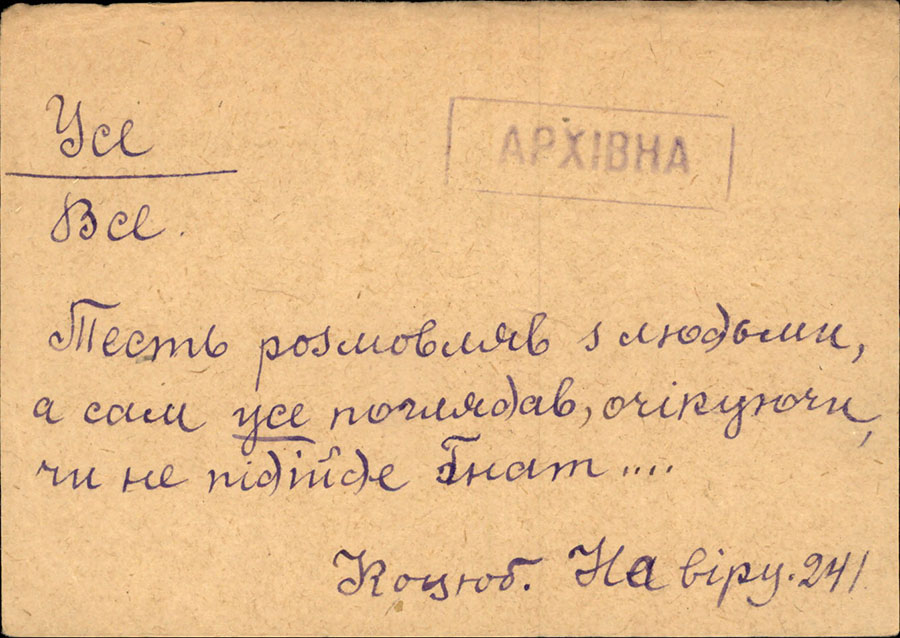 Усе
АРХІВНА
Все.
Тесть розмовляв з людьми,
а сам усе поглядав, очікуючи,
чи не підійде Гнат....
Коцюб. На віру. 241